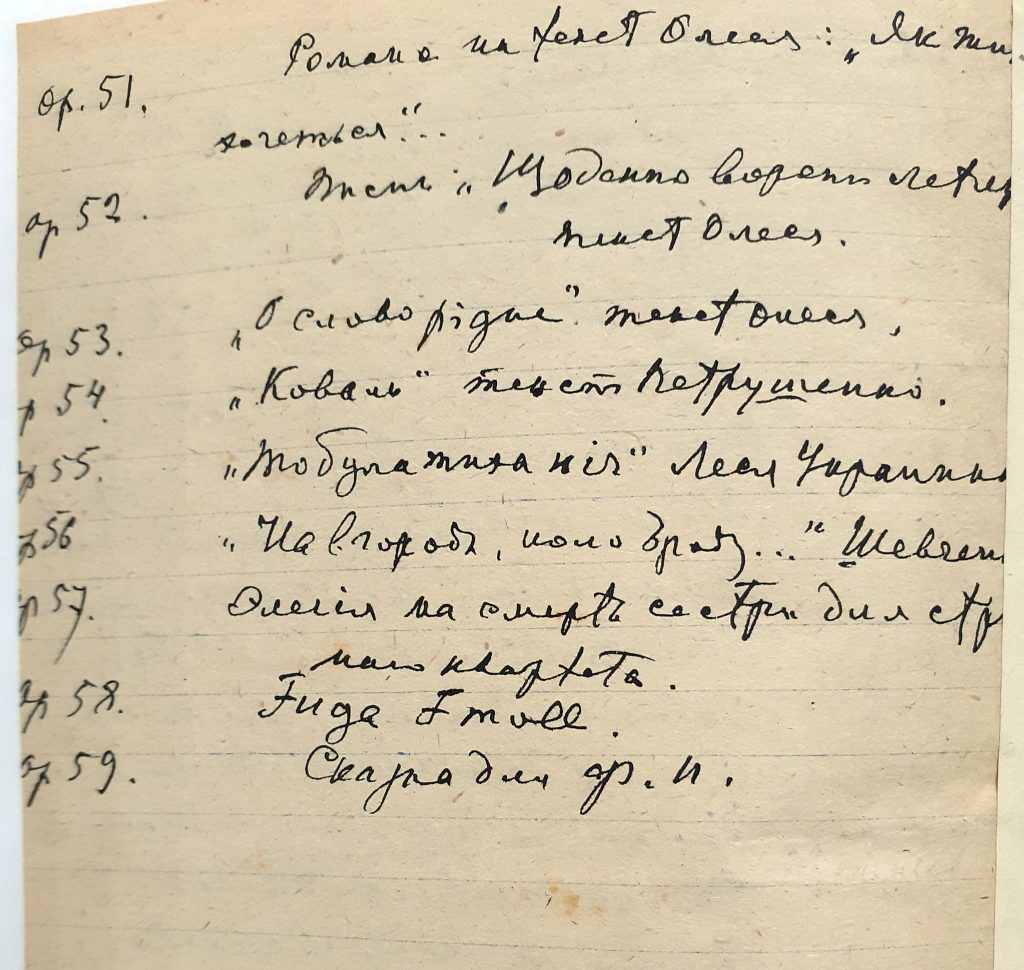 op. 51. Романс на текст Олеся: „Як жи
хочеться"...
op 52. Тект: „Щоденно ворон
текст Олеся.
op 53. „О слово рідне" текст Олеся.
p 54. „Коваль" текст Петрушенко.
p 55. „То була тиха ніч" Леся Украинка
p 56 „На вгороді, коло броду..." Шевчен
p 57. Элегія на смерть сестри для стр
ного квартета.
op 58. Fuga F moll.
op 59. Сказка для ф. п.